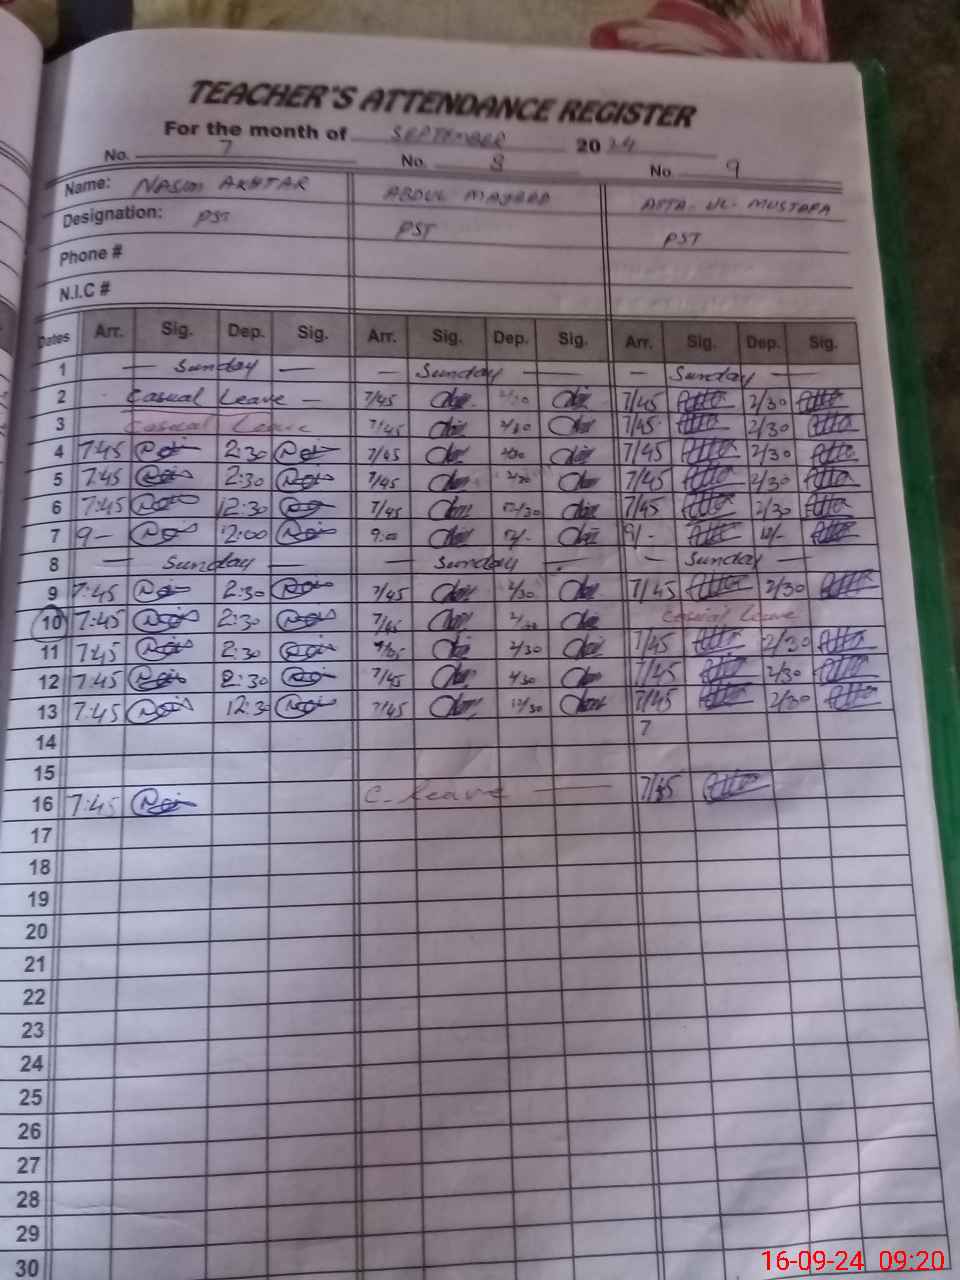 TEACHER'S ATTENDANCE REGISTER
For the month of SEPTEMBER 2024
No. 7 No. 8 No. 9
Name: NASIM AKHTAR ABDUL MAJEED ATTA-UL-MUSTAFA
Designation: PST PST PST
Phone #
N.I.C #
Dates Arr. Sig. Dep. Sig. Arr. Sig. Dep. Sig. Arr. Sig. Dep. Sig.
1 — Sunday — — Sunday — — Sunday —
2 Casual Leave — 7/45 2/30 7/45 2/30
3 Casual Leave 7/45 2/30 7/45 2/30
4 7:45 2:30 7/45 2/30 7/45 2/30
5 7:45 2:30 7/45 2/30 7/45 2/30
6 7:45 12:30 7/45 12/30 7/45 2/30
7 9- 2:00 9:00 12/- 9/-
8 — Sunday — — Sunday — — Sunday —
9 7:45 2:30 7/45 2/30 7/45 2/30
10 7:45 2:30 7/45 Casual Leave
11 7:45 2:30 2/30 7/45 2/30
12 7:45 2:30 7/45 2/30 7/45 2/30
13 7:45 12:30 7/45 12/30 7/45 2/30
14 7
15
16 7:45 C. Leave — 7/45
17
18
19
20
21
22
23
24
25
26
27
28
29
30
16-09-24 09:20